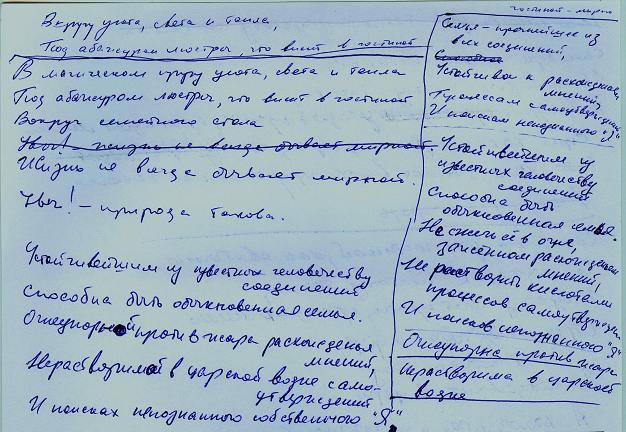 В кругу уюта, света и тепла,
Под абажуром люстры, что висит в гостиной
В магическом кругу уюта, света и тепла
Под абажуром люстры, что висит в гостиной
Вокруг семейного стола
Увы! - жизнь не всегда бывает мирной.
Жизнь не всегда бывает мирной.
Увы! - природа такова.
Устойчивейшим из известных человечеству
соединений
Способна быть обыкновенная семья.
Огнеупорной против жара расхожденья
мнений,
Нерастворимой в царской водке само-
утверждений
И поисках непознанного собственного "Я"
гостиной - мирно
Семья - прочнейшее из
всех соединений,
Способна
Устойчива к расхожденью
мнений,
Процессам самоутверждений
И поискам непознанного "Я"
Устойчивейшим из
известных человечеству
соединений
Способна быть
обыкновенная семья.
Не сжечь её в огне,
зажжённом расхожденьем
мнений,
Не растворить кислотами
процессов самоутверждения
И поисков непознанного "Я"
Огнеупорна против жара
Нерастворима в царской
водке